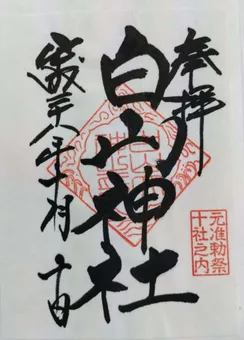 奉拝
白山神社
元准勅祭
十社之内
平成二十八年十一月十日